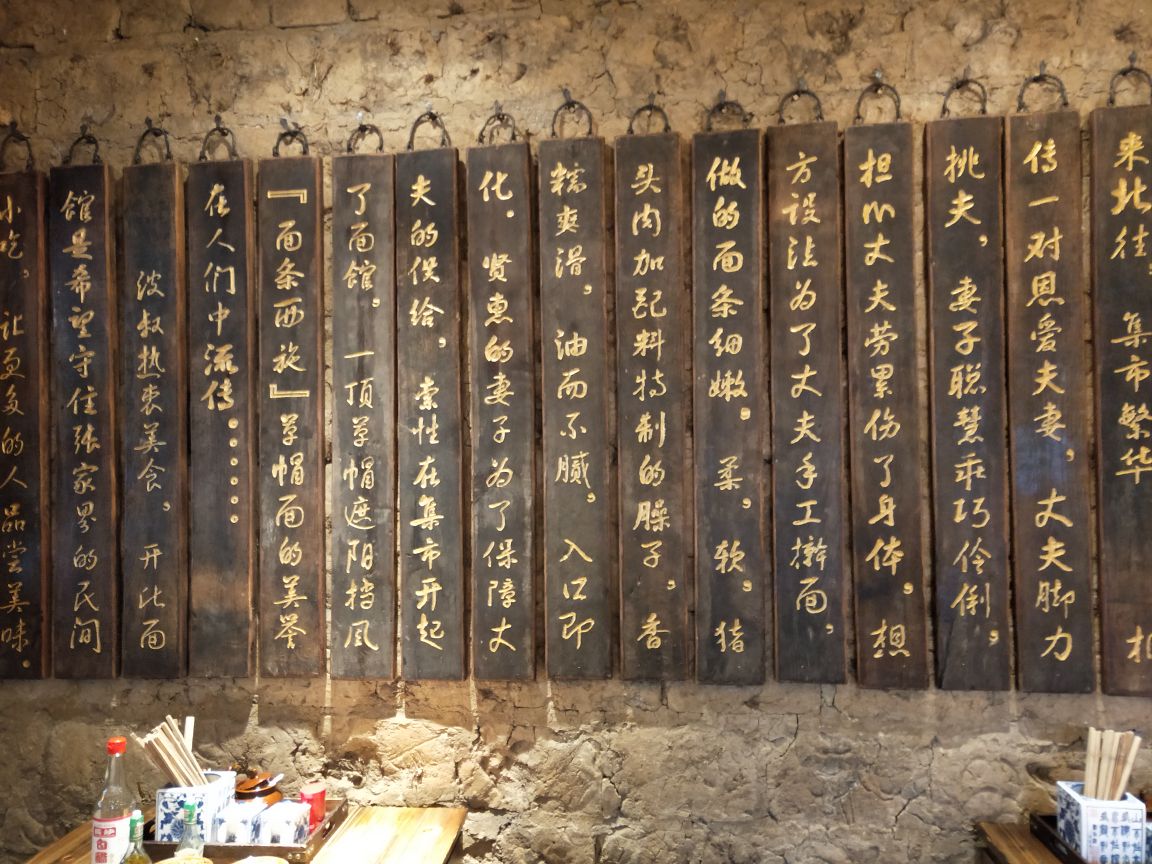 来北往,集市繁华 相
传一对恩爱夫妻,丈夫脚力
挑夫,妻子聪慧乖巧伶俐,
担心丈夫劳累伤了身体,想
方设法为了丈夫手工擀面,
做的面条细嫩。柔,软,猪
头肉加配料特制的臊子,香
糯爽滑,油而不腻,入口即
化。贤惠的妻子为了保障丈
夫的供给,索性在集市开起
了面馆,一顶草帽遮阳挡风
『面条西施』草帽面的美誉
在人们中流传。。。。。。
波叔热衷美食,开此面
馆是希望守住张家界的民间
小吃。让更多的人品尝美味。
白醋